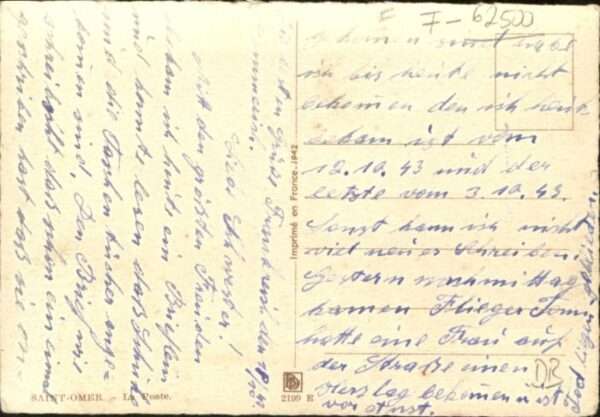 F 7-62500
den 18/10 43
Lieb Schwester!
Mit den größten Freuden
bekam ich heute ein Brieflein
und konnte lesen daß
und die Taschentücher ange-
komen sind. Den Brief wie
schreibst daß schon ein einmal
geschrieben hast daß sie an-
gekomen sind habe
ich bis heute nicht
bekomen den ich heute
bekam ist vom
12.10.43 und der
letzte vom 3.10.43.
Sonst kann ich nicht
viel neues Schreiben.
Gestern nachmittag
kamen Flieger
hatte eine Frau auf
der Straße einen
Herzslag bekomen u ist
vor Angst
Tod liegen geblieben.
DB
Imprimé en France. 1942
SAINT-OMER. - La Poste.
2199 E